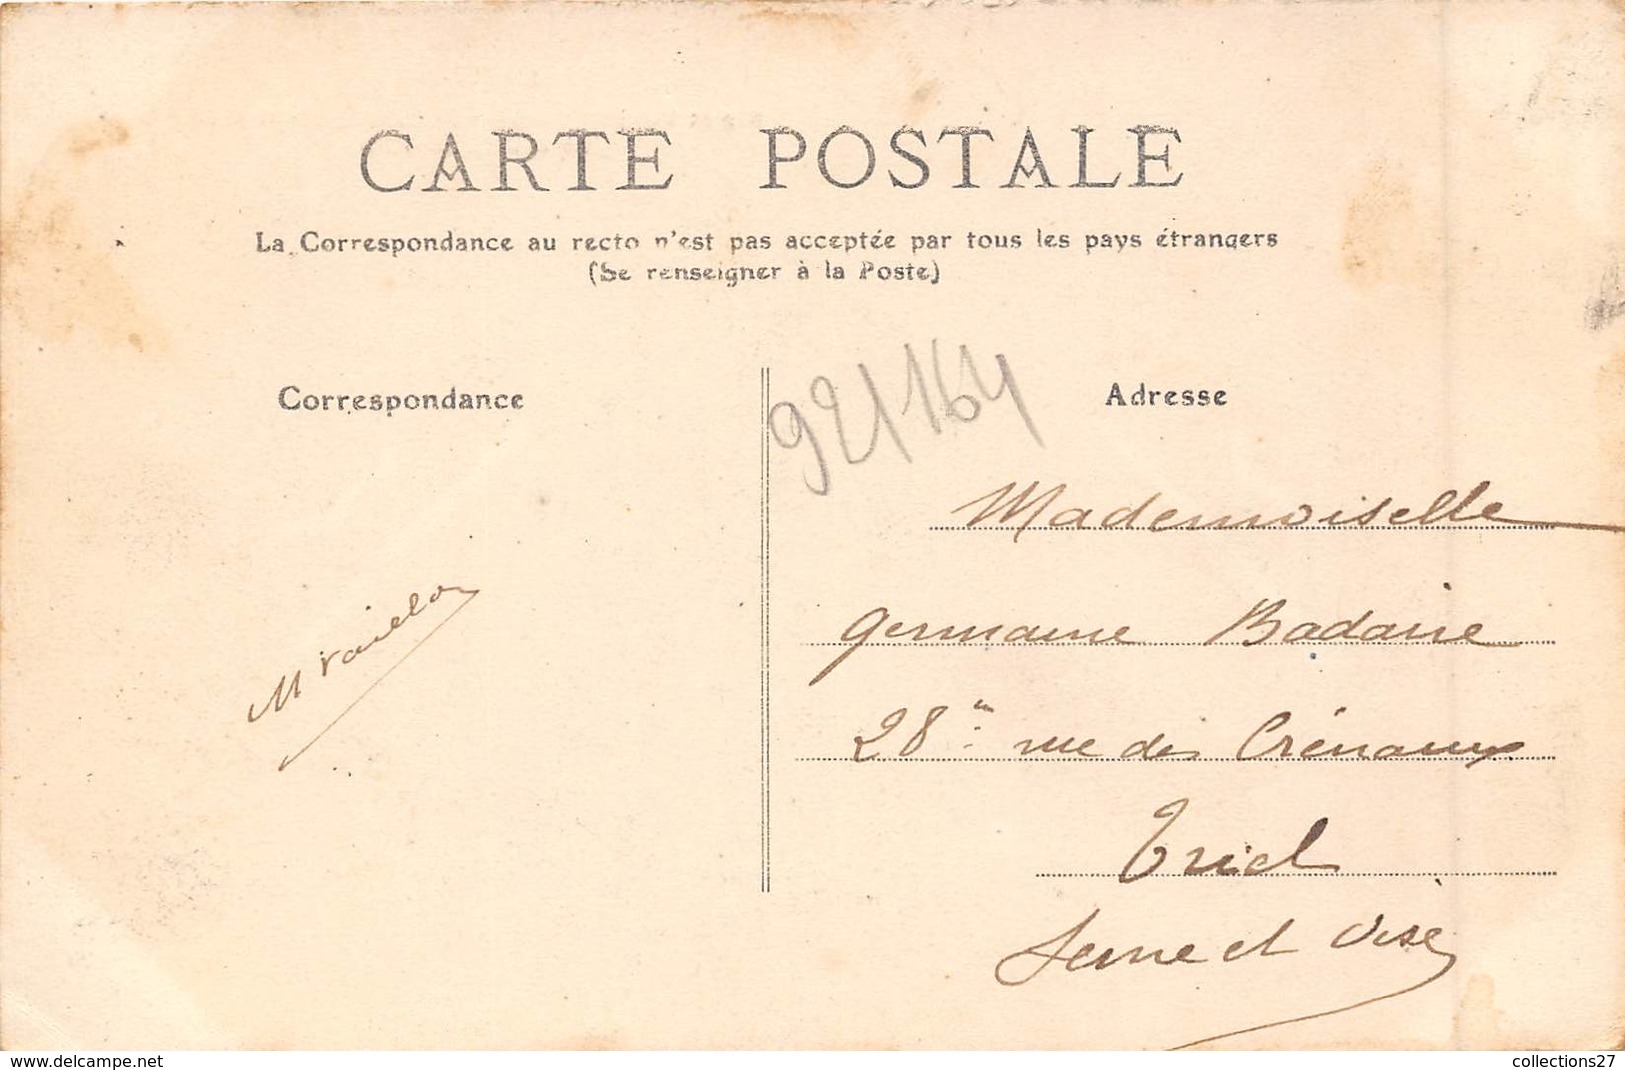 CARTE POSTALE
La Correspondance au recto n'est pas acceptée par tous les pays étrangers
(Se renseigner à la Poste)
Correspondance
Adresse
921164
Mademoiselle
Germaine Badaire
28 rue des Crénaux
Triel
Seine et Oise
www.delcampe.net
collections27